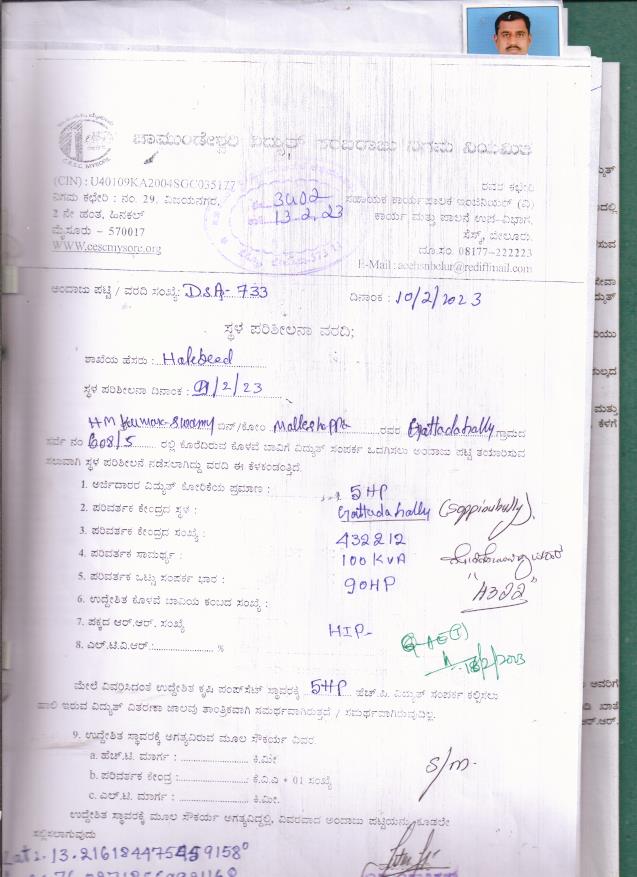 ಚಾಮುಂಡೇಶ್ವರಿ ವಿದ್ಯುತ್ ಸರಬರಾಜು ನಿಗಮ ನಿಯಮಿತ
C.E.S.C. MYSORE
(CIN) : U40109KA2004SGC035177
ನಿಗಮ ಕಛೇರಿ : ನಂ. 29. ವಿಜಯನಗರ,
2 ನೇ ಹಂತ, ಹಿನಕಲ್
ಮೈಸೂರು - 570017
WWW.cescmysore.org
3402
13.2.23
ರವರ ಕಛೇರಿ
ಸಹಾಯಕ ಕಾರ್ಯಪಾಲಕ ಇಂಜಿನಿಯರ್ (ವಿ)
ಕಾರ್ಯ ಮತ್ತು ಪಾಲನೆ ಉಪ-ವಿಭಾಗ,
ಸೆಸ್ಕ್, ಬೇಲೂರು.
ದೂ.ಸಂ. 08177-222223
E-Mail : aeehsnbelur@rediffmail.com
ಅಂದಾಜು ಪಟ್ಟಿ / ವರದಿ ಸಂಖ್ಯೆ: DSA-733 ದಿನಾಂಕ : 10/2/2023
ಸ್ಥಳ ಪರಿಶೀಲನಾ ವರದಿ;
ಶಾಖೆಯ ಹೆಸರು : Halebeed
ಸ್ಥಳ ಪರಿಶೀಲನಾ ದಿನಾಂಕ : /2/23
HM Kumar Swamy ಬಿನ್/ಕೋಂ Malleshappa ರವರ Ghattadahally ಗ್ರಾಮದ
ಸರ್ವೆ ನಂ 608/5 ರಲ್ಲಿ ಕೊರೆದಿರುವ ಕೊಳವೆ ಬಾವಿಗೆ ವಿದ್ಯುತ್ ಸಂಪರ್ಕ ಒದಗಿಸಲು ಅಂದಾಜು ಪಟ್ಟಿ ತಯಾರಿಸುವ
ಸಲುವಾಗಿ ಸ್ಥಳ ಪರಿಶೀಲನೆ ನಡೆಸಲಾಗಿದ್ದು ವರದಿ ಈ ಕೆಳಕಂಡಂತಿದೆ.
1. ಅರ್ಜಿದಾರರ ವಿದ್ಯುತ್ ಕೋರಿಕೆಯ ಪ್ರಮಾಣ : 5HP
2. ಪರಿವರ್ತಕ ಕೇಂದ್ರದ ಸ್ಥಳ : Ghattadahally
3. ಪರಿವರ್ತಕ ಕೇಂದ್ರದ ಸಂಖ್ಯೆ : 432212
4. ಪರಿವರ್ತಕ ಸಾಮರ್ಥ್ಯ : 100 KVA
5. ಪರಿವರ್ತಕ ಒಟ್ಟು ಸಂಪರ್ಕ ಭಾರ : 90HP
"4322"
6. ಉದ್ದೇಶಿತ ಕೊಳವೆ ಬಾವಿಯ ಕಂಬದ ಸಂಖ್ಯೆ :
7. ಪಕ್ಕದ ಆರ್.ಆರ್. ಸಂಖ್ಯೆ HIP-
8. ಎಲ್.ಟಿ.ವಿ.ಆರ್ : %
ಮೇಲೆ ವಿವರಿಸಿದಂತೆ ಉದ್ದೇಶಿತ ಕೃಷಿ ಪಂಪ್‌ಸೆಟ್ ಸ್ಥಾವರಕ್ಕೆ 5HP ಹೆಚ್.ಪಿ. ವಿದ್ಯುತ್ ಸಂಪರ್ಕ ಕಲ್ಪಿಸಲು
ಹಾಲಿ ಇರುವ ವಿದ್ಯುತ್ ವಿತರಣಾ ಜಾಲವು ತಾಂತ್ರಿಕವಾಗಿ ಸಮರ್ಥವಾಗಿರುತ್ತದೆ / ಸಮರ್ಥವಾಗಿರುವುದಿಲ್ಲ.
9. ಉದ್ದೇಶಿತ ಸ್ಥಾವರಕ್ಕೆ ಅಗತ್ಯವಿರುವ ಮೂಲ ಸೌಕರ್ಯ ವಿವರ
a. ಹೆಚ್.ಟಿ. ಮಾರ್ಗ : ಕಿ.ಮೀ
b. ಪರಿವರ್ತಕ ಕೇಂದ್ರ : ಕೆ.ವಿ.ಎ + 01 ಸಂಖ್ಯೆ
c. ಎಲ್.ಟಿ. ಮಾರ್ಗ : ಕಿ.ಮೀ.
ಉದ್ದೇಶಿತ ಸ್ಥಾವರಕ್ಕೆ ಮೂಲ ಸೌಕರ್ಯ ಅಗತ್ಯವಿದ್ದಲ್ಲಿ, ವಿವರವಾದ ಅಂದಾಜು ಪಟ್ಟಿಯನ್ನು ಕೂಡಲೇ
ಸಲ್ಲಿಸಲಾಗುವುದು